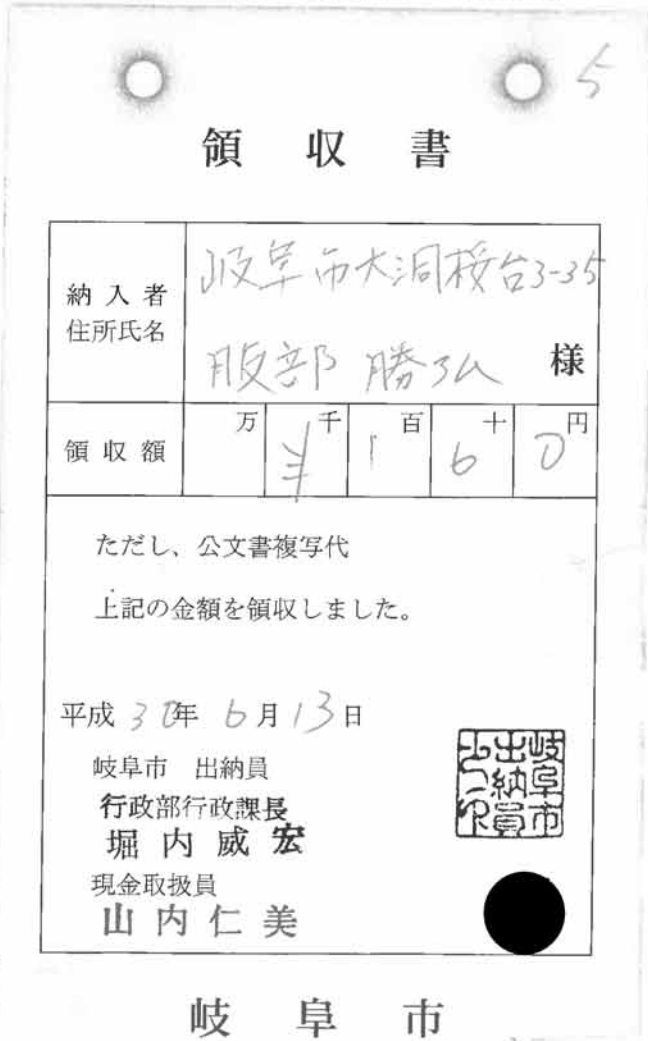 5
領収書
納入者
住所氏名
岐阜市大洞桜台3-35
服部 勝弘 様
領収額
万 千 百 十 円
¥ 1 6 0
ただし、公文書複写代
上記の金額を領収しました。
平成30年6月13日
岐阜市 出納員
行政部行政課長
堀内威宏
現金取扱員
山内仁美
岐阜市
出納員
岐阜市